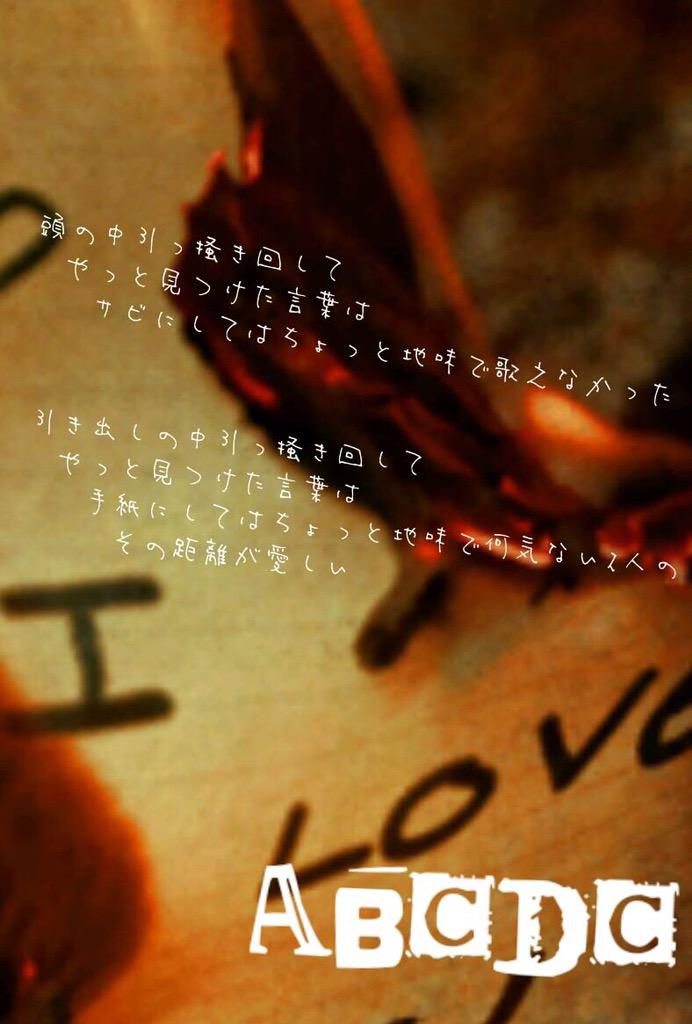 頭の中引っ掻き回して
やっと見つけた言葉は
サビにしてはちょっと地味で歌えなかった
引き出しの中引っ掻き回して
やっと見つけた言葉は
手紙にしてはちょっと地味で何気ない2人の
その距離が愛しい
I
LOVE
ABCDC